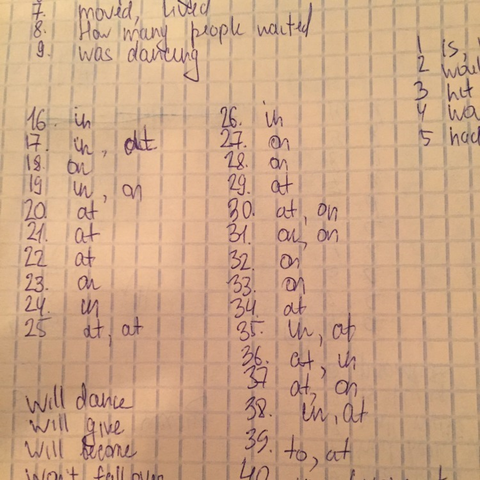 7. moved, lived
8. How many people waited
9. was dancing
16. in
17. in, at
18. on
19 in, on
20. at
21. at
22 at
23. on
24. in
25 at, at
will dance
will give
will become
won't fall over
26. in
27. on
28. on
29. at
30. at, on
31. on, on
32. on
33. on
34. at
35. in, at
36. at, in
37 at, on
38. in, at
39. to, at
40.
1 is,
2
3 hit
4
5 had